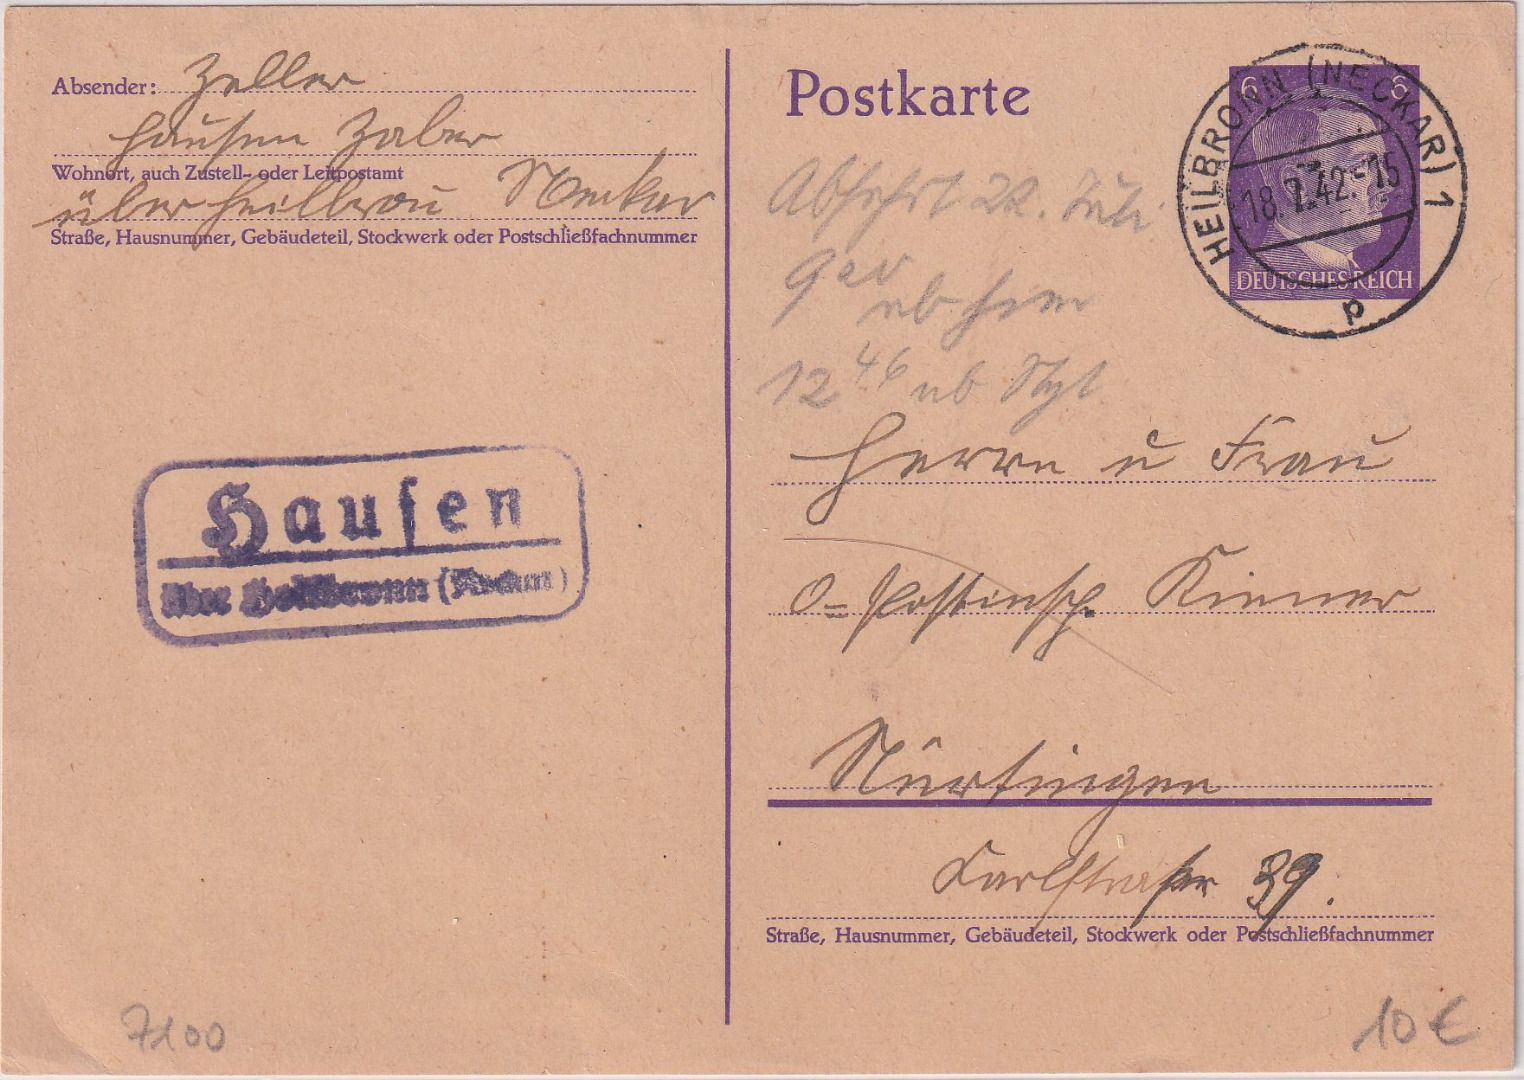 Absender: Zeller
Hausen Zaber
Wohnort, auch Zustell- oder Leitpostamt
über Heilbronn Neckar
Straße, Hausnummer, Gebäudeteil, Stockwerk oder Postschließfachnummer
Hausen
über Heilbronn (Neckar)
7100
Postkarte
6 6
DEUTSCHES REICH
HEILBRONN (NECKAR) 1
18.7.42.-15
p
Abfahrt 22. Juli
9 ab
12 46 ab
Herrn u Frau
O=Postinsp. Kiener
Nürtingen
Karlstraße 39.
Straße, Hausnummer, Gebäudeteil, Stockwerk oder Postschließfachnummer
10 €